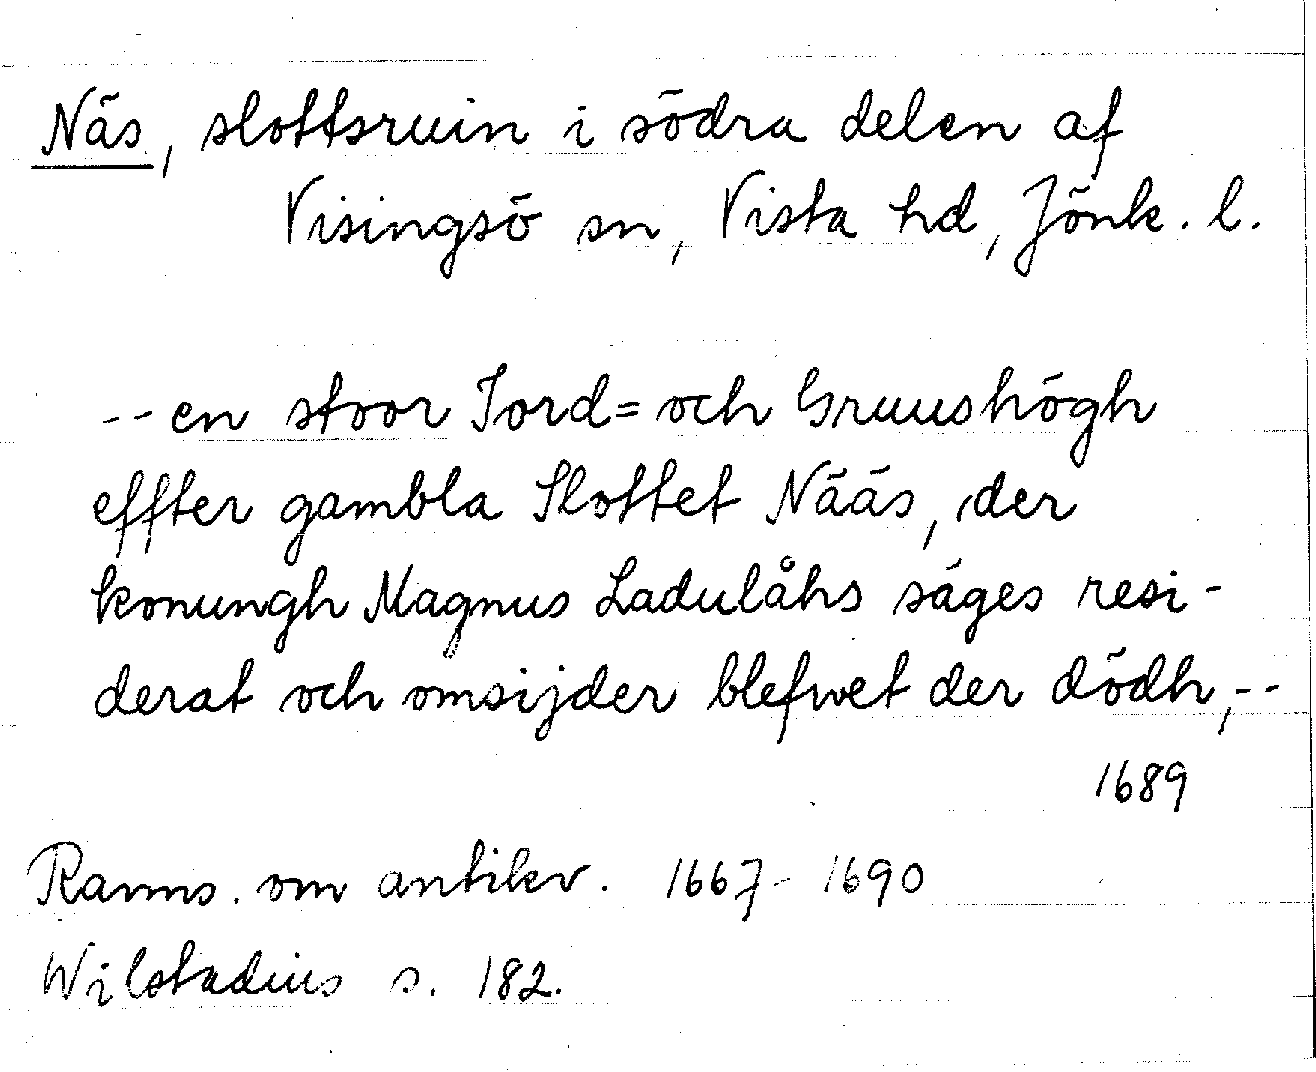 Näs, slottsruin i södra delen af
Visingsö sn, Vista hd, Jönk. l.
-- en stoor Jord= och Gruushögh
effter gambla Slottet Nääs, der
konungh Magnus Ladulåhs säges resi-
derat och omsijder blefwet der dödh, --
1689
Ranns. om antikv. 1667 - 1690
Wilstadius s. 182.